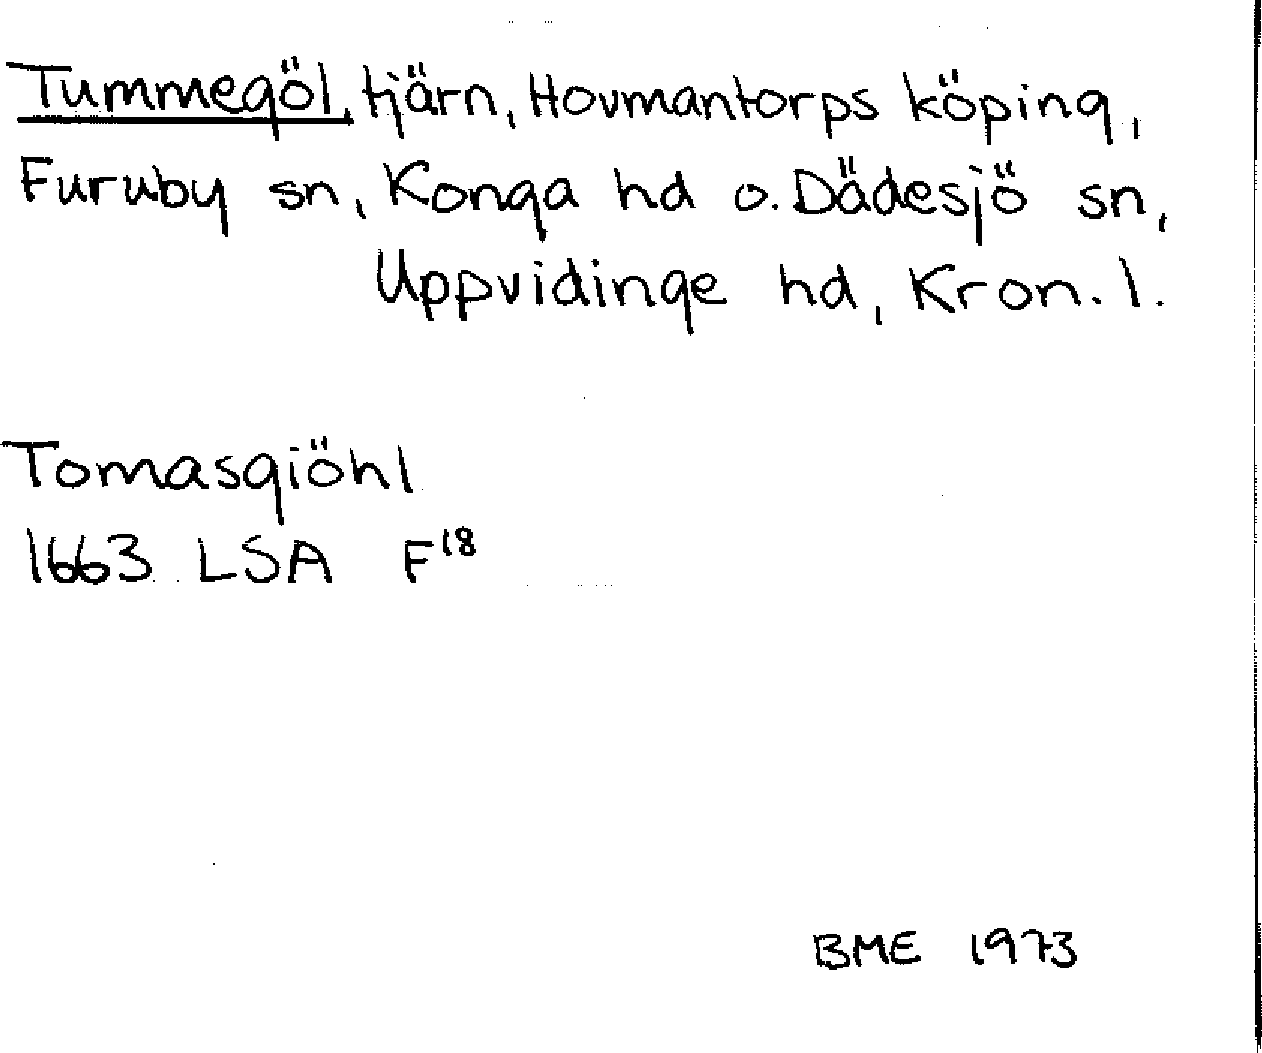 Tummegöl, tjärn, Hovmantorps köping,
Furuby sn, Konga hd o. Dädesjö sn,
Uppvidinge hd, Kron. l.
Tomasgiöhl
1663 LSA F18
BME 1973